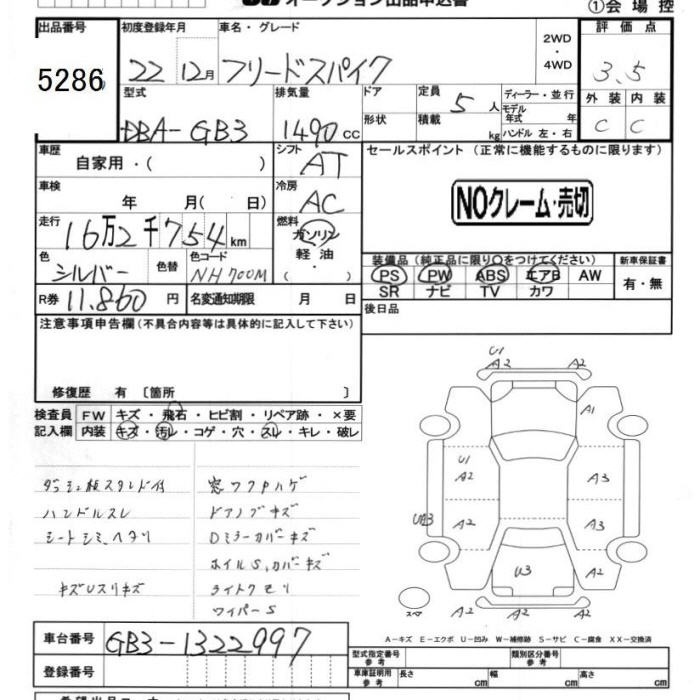 オークション出品申込書
①会場控
出品番号 初度登録年月 車名・グレード 2WD ・ 4WD 評価点
5286 22 12月 フリードスパイク 3.5
型式 排気量 ドア 定員 5人 ディーラー・並行 外装 内装
DBA-GB3 1490 cc 形状 積載 kg モデル年式 年 ハンドル 左・右 C C
車歴 自家用・( ) シフト AT セールスポイント(正常に機能するものに限ります)
車検 年 月( 日) 冷房 AC NOクレーム・売切
走行 16万2千754km 燃料 ガソリン 軽油 ・( )
色 シルバー 色替 色コード NH700M 装備品(純正品に限り○をつけてください) 新車保証書
PS PW ABS エアB AW 有・無
SR ナビ TV カワ
R券 11,860円 名変通知期限 月 日 後日品
注意事項申告欄(不具合内容等は具体的に記入して下さい)
修復歴 有 〔箇所 〕
検査員 FW キズ・飛石・ヒビ割・リペア跡・×要
記入欄 内装 キズ・汚レ・コゲ・穴・スレ・キレ・破レ
ダッシュ板スタンド付 窓フクタハゲ
ハンドルスレ ドアノブキズ
シートシミ、ヘタリ Dミラーカバーキズ
ホイルS,カバーキズ
キズUスリキズ ライトクモリ
ワイパーS
U1
A2 A2
A1
U1
A2 A3
A2 A3
U3
A2 A2
スペア A2 A2
A-キズ E-エクボ U-凹み W-補修跡 S-サビ C-腐食 XX-交換済
車台番号 GB3-1322997
登録番号
型式指定番号 参考 類別区分番号 参考
車庫証明用 参考 長さ cm 幅 cm 高さ cm